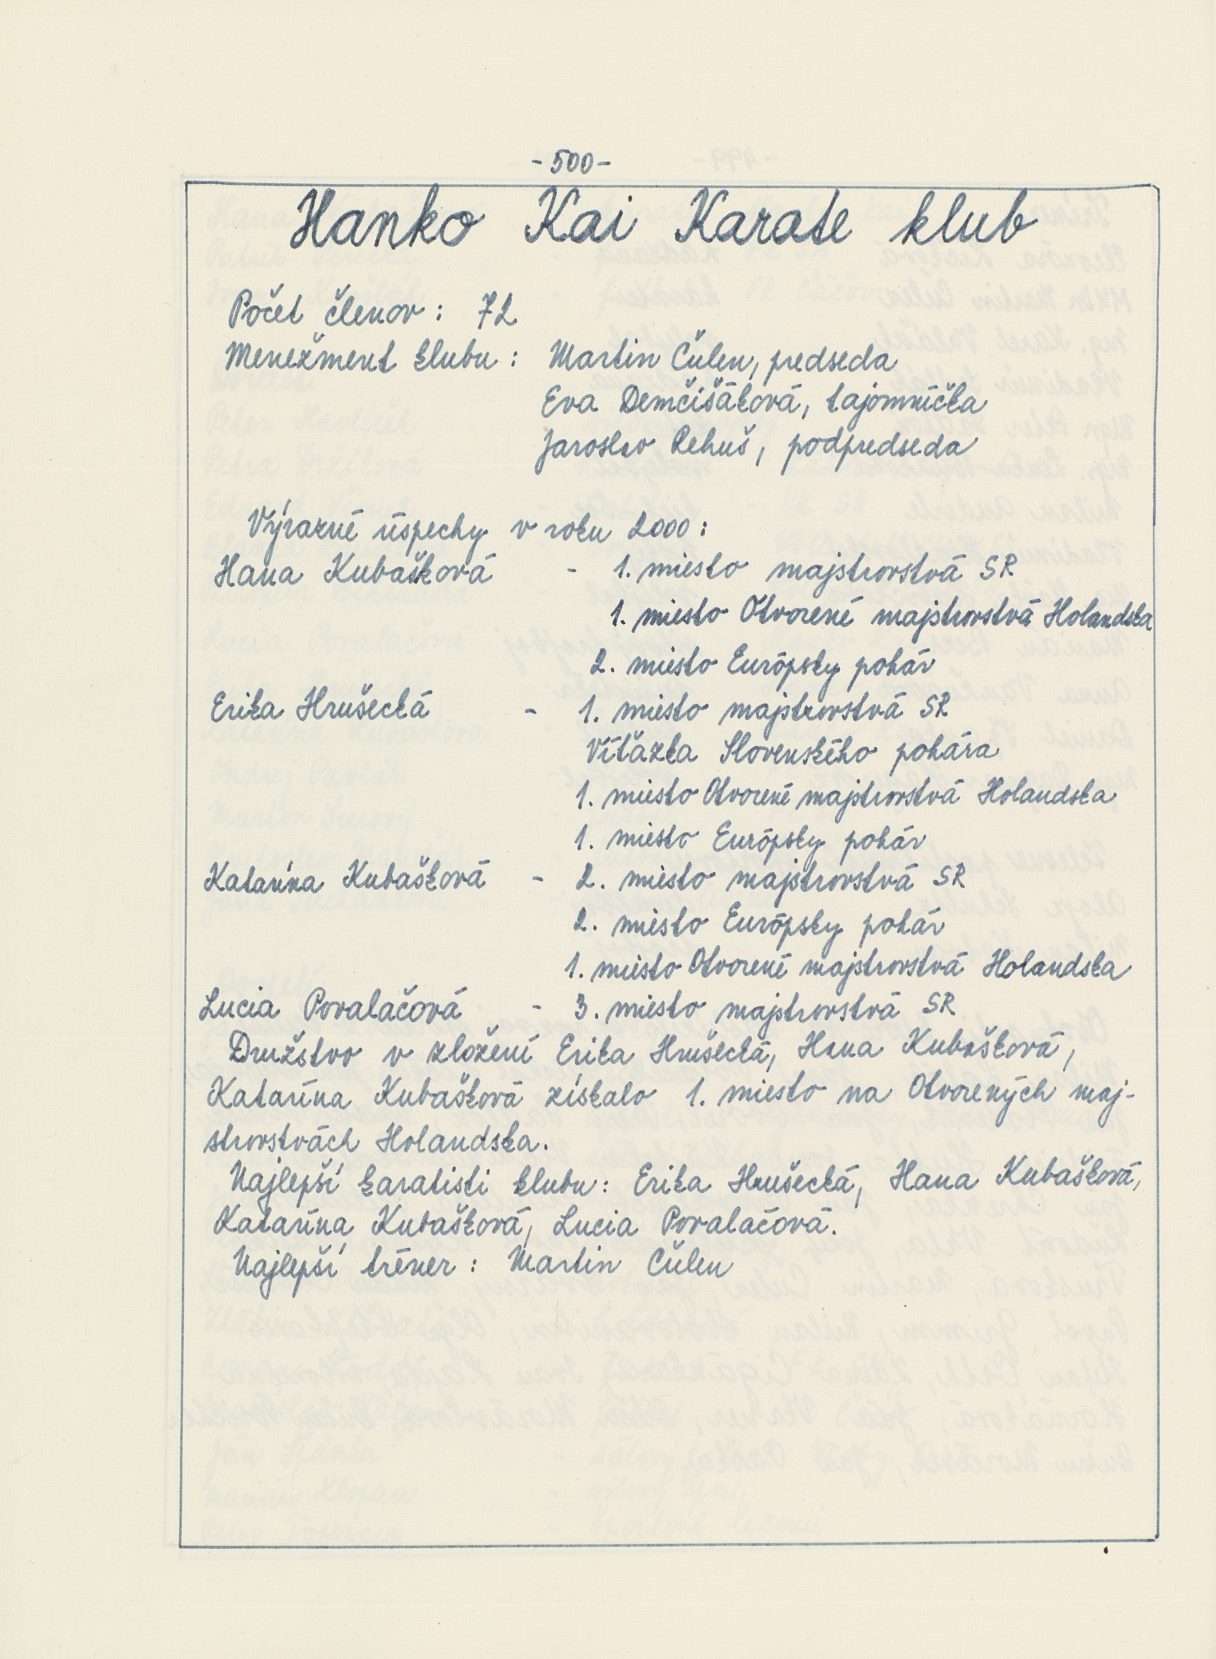 -500-
Hanko Kai Karate klub
Počet členov: 72
Menežment klubu: Martin Čulen, predseda
Eva Demčišáková, tajomníčka
Jaroslav Rehuš, podpredseda
Výrazné úspechy v roku 2000:
Hana Kubašková - 1. miesto majstrovstvá SR
1. miesto Otvorené majstrovstvá Holandska
2. miesto Európsky pohár
Erika Hrušecká - 1. miesto majstrovstvá SR
Víťazka Slovenského pohára
1. miesto Otvorené majstrovstvá Holandska
1. miesto Európsky pohár
Katarína Kubašková - 2. miesto majstrovstvá SR
2. miesto Európsky pohár
1. miesto Otvorené majstrovstvá Holandska
Lucia Poralačová - 3. miesto majstrovstvá SR
Družstvo v zložení Erika Hrušecká, Hana Kubašková,
Katarína Kubašková získalo 1. miesto na Otvorených maj-
strovstvách Holandska.
Najlepší karatisti klubu: Erika Hrušecká, Hana Kubašková,
Katarína Kubašková, Lucia Poralačová.
Najlepší tréner: Martin Čulen